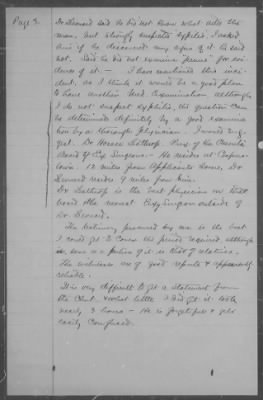 Page 3.
Dr Leonard said he did not know what ails the
man, but strongly suspects syphilis. I asked
him if he discovered any signs of it. He said
not. Said he did not examine "penis" for evi-
dence of it. — I have mentioned this inci-
dent, as I think it would be a good plan
to have another Med. Examination although
I do not suspect syphilis, the question can
be determined definitely by a good examina-
tion by a thorough Physician. I would sug-
gest Dr Horace Lathrop Pres of the
Board of Ex Surgeons. He resides at Coopers-
town. 12 miles from Applicants home, Dr
Leonard resides 9 miles from him.
Dr Lathrop is the best physician on that
board & the nearest Ex Surgeon outside of
Dr. Leonard.
The testimony procured by me is the best
I could get to cover the period required, although
some of it is that of relatives.
The witnesses are of good repute & apparently
reliable.
It is very difficult to get a statement from
the Clmt. & what little I did get it took
nearly 3 hours — He is forgetful & gets
easily confused.